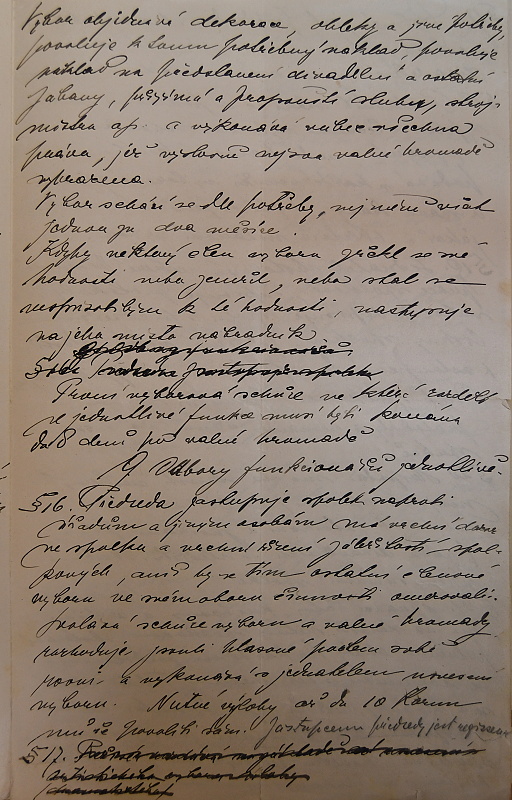 Výbor objednává dekorace, obleky a jiné potřeby,
povoluje k tomu potřebný náklad, povoluje
náklad na představení divadelní a ostatní
zábavy, přijímá a propouští sluhy, stroj-
mistra ap. a vykonává vůbec všechna
práva, jež výslovně nejsou valné hromadě
vyhrazena.
Výbor schází se dle potřeby, nejméně však
jednou za dva měsíce.
Kdyby některý člen výboru zřekl se své
hodnosti nebo zemřel, neb stal se
neschopným k té hodnosti, nastupuje
na jeho místo náhradník
První výborová schůze ve které rozdělí
se jednotlivé funkce musí býti konána
do 8 dnů po valné hromadě
funkcionářů jednotlivě.
§ 16. Předseda zastupuje spolek naproti
úřadům a jiným osobám má vrchní dozor
ve spolku a vrchní řízení záležitostí spol-
kových, aniž by se tím ostatní členové
výboru ve svém oboru činnosti omezovali.
Svolává schůze výboru a valné hromady
rozhoduje při hlasové
rovni a vykonává s jednatelem usnesení
výboru. Nutné výlohy až do 10 Korun
může povoliti sám. Zástupcem předsedy jest
§ 17.